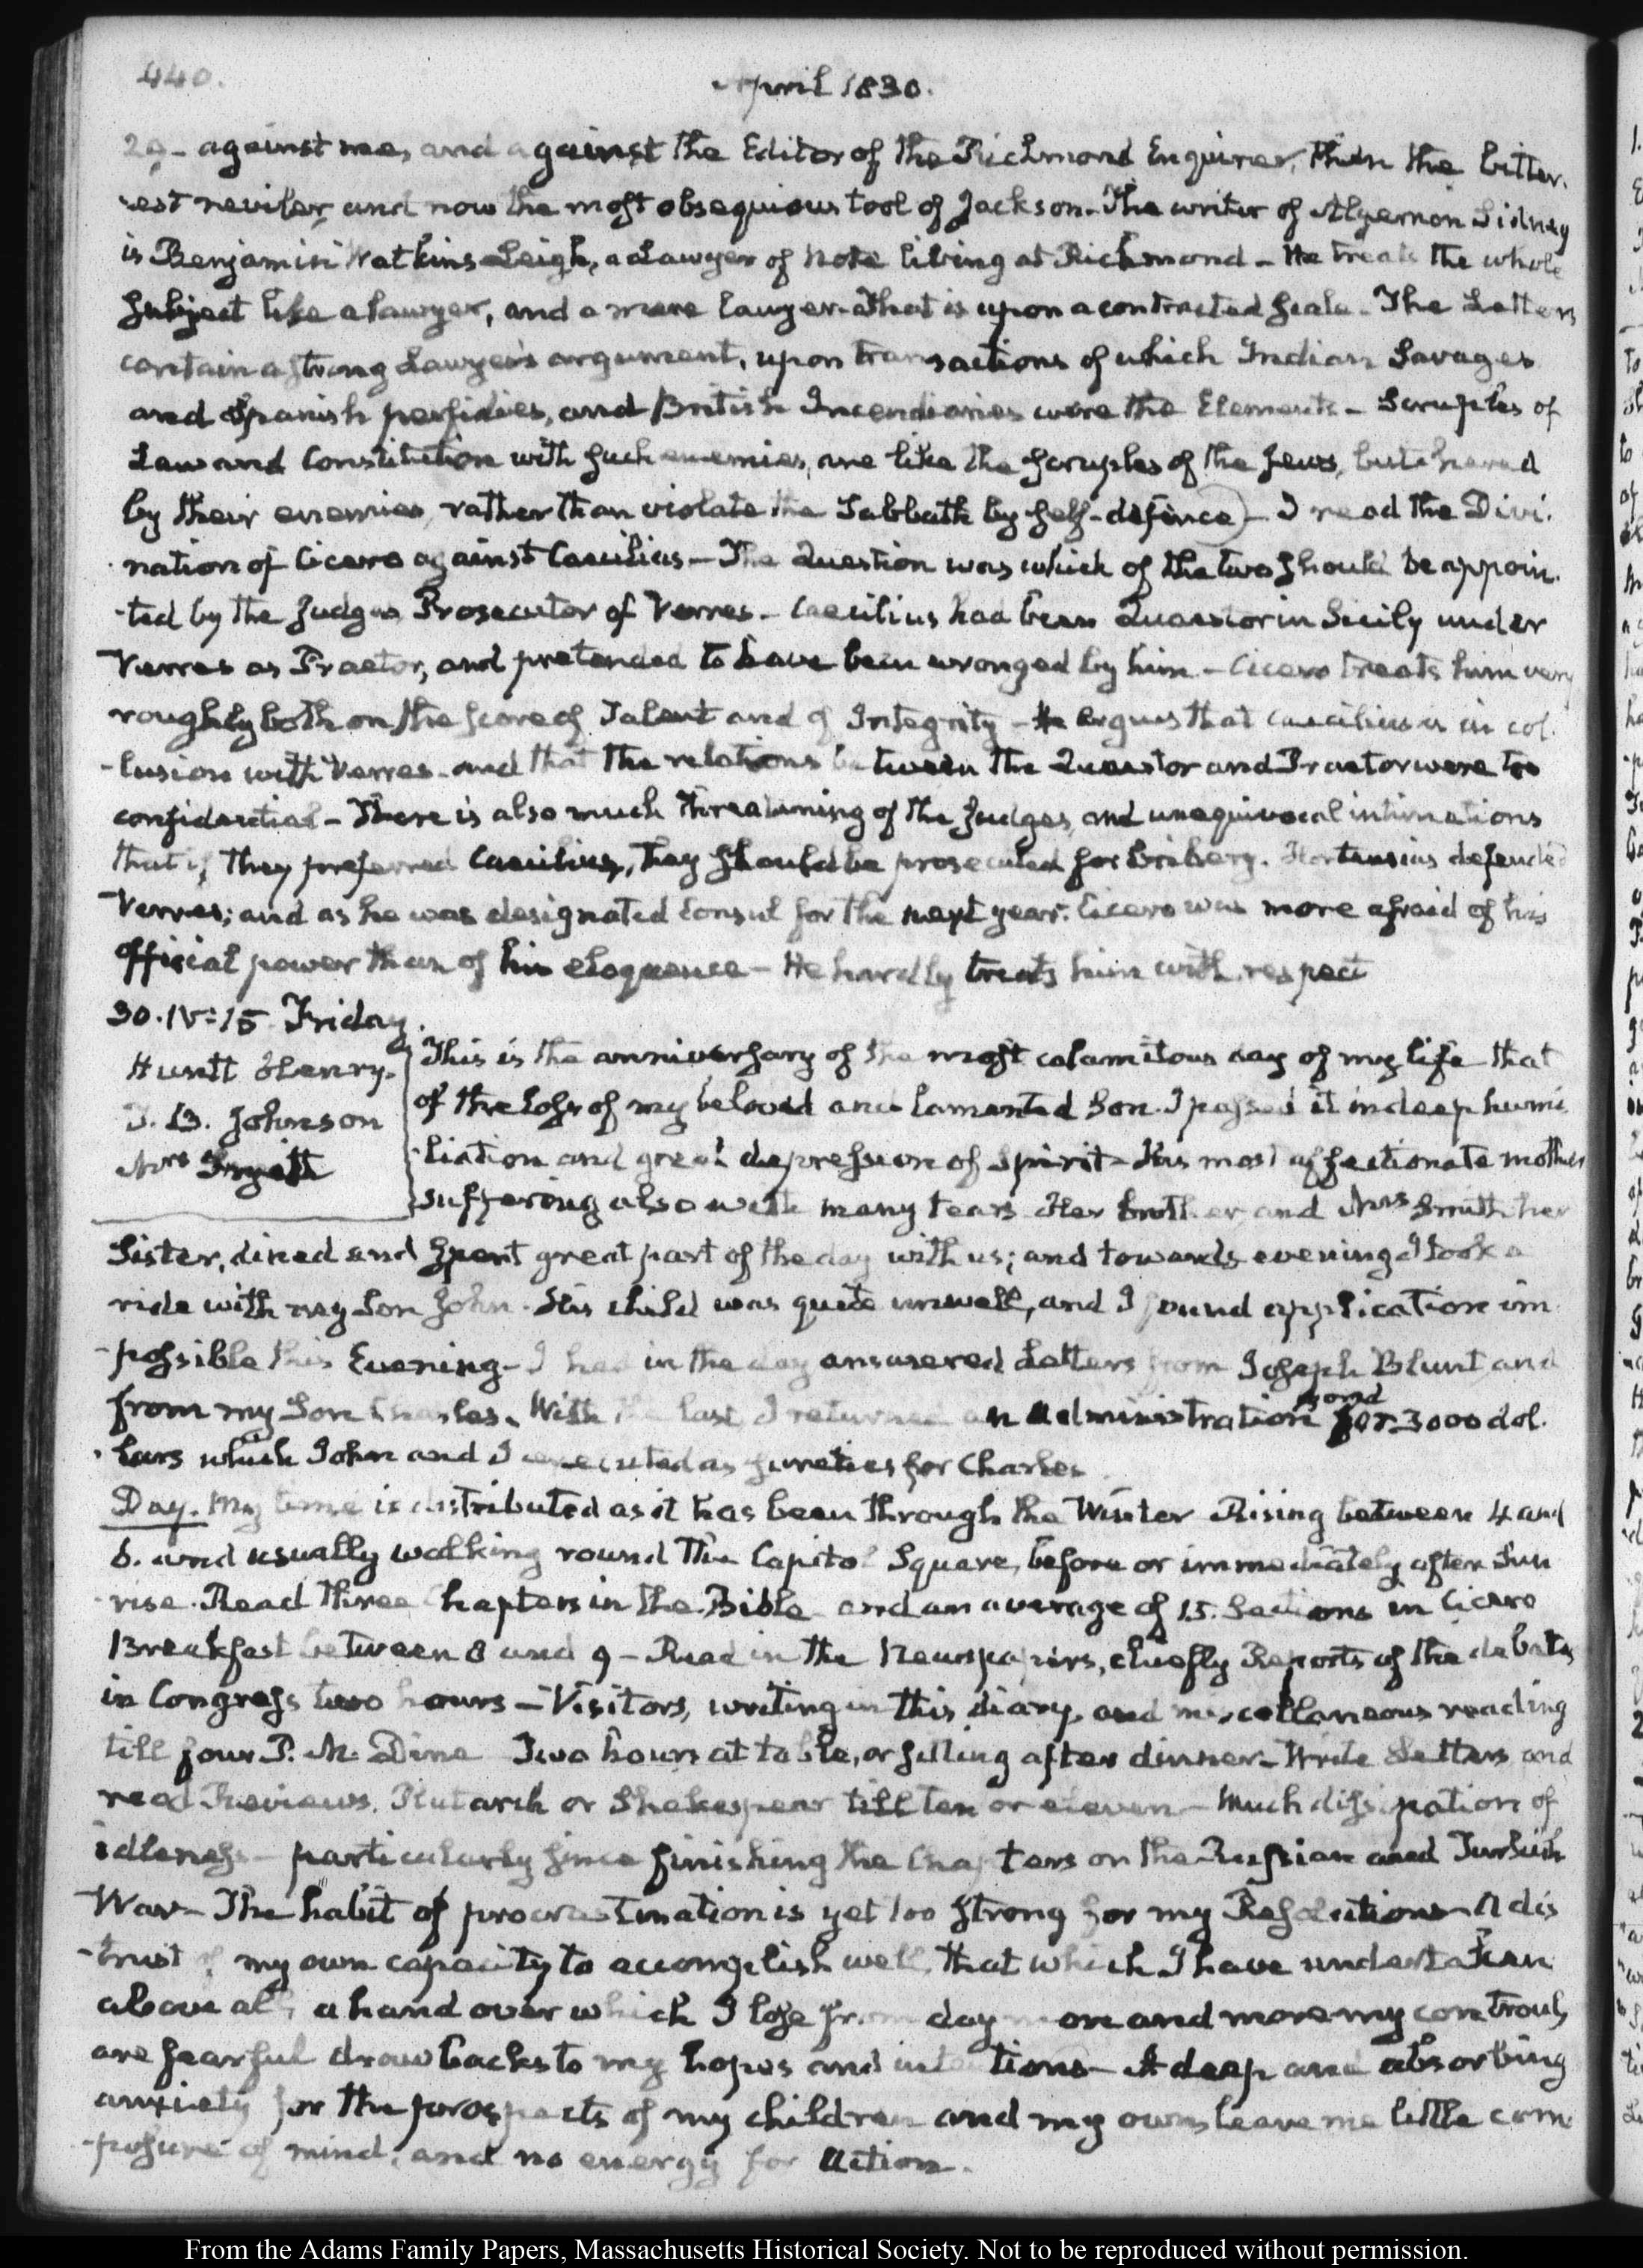 440.
April 1830.
29 - against me, and against the Editor of the Richmond Enquirer, then the bitter-
-est reviler, and now the most obsequious tool of Jackson - The writer of Algernon Sidney
is Benjamin Watkins Leigh, a Lawyer of note living at Richmond - He treats the whole
subject like a lawyer, and a mere lawyer - that is upon a contracted scale - The Letters
contain a strong Lawyer's argument, upon transactions of which Indian Savages
and Spanish perfidies, and British Incendiaries were the Elements - Scruples of
Law and Constitution with such enemies, are like the scruples of the Jews, butchered
by their enemies, rather than violate the Sabbath by self-defence) - I read the Divi-
nation of Cicero against Caecilius - The Question was which of the two should be appoin-
-ted by the Judges Prosecutor of Verres - Caecilius had been Quaestor in Sicily under
Verres as Praetor, and pretended to have been wronged by him - Cicero treats him very
roughly both on the score of Talent and of Integrity - He argues that Caecilius is in col-
-lusion with Verres - and that the relations between the Quaestor and Praetor were too
confidential - There is also much threatening of the Judges, and unequivocal intimations
that if they preferred Caecilius, they should be prosecuted for Bribery. Hortensius defended
Verres; and as he was designated Consul for the next year. Cicero was more afraid of his
official power than of his eloquence - He hardly treats him with respect
30. IV:15 Friday.
Huntt Henry.
J. B. Johnson
Mrs
This is the anniversary of the most calamitous day of my life that
of the loss of my beloved and lamented Son. I passed it in deep humi
-liation and great depression of Spirit - His most affectionate mother
suffering also with many tears. Her brother, and Mrs Smith her
Sister, dined and spent great part of the day with us; and towards evening I took a
ride with my Son John. His child was quite unwell, and I found application im
-possible this Evening - I had in the day answered Letters from Joseph Blunt and
from my Son Charles. With the last I returned an Administration bond for 3000 dol-
-lars which John and I executed as sureties for Charles
Day. My time is distributed as it has been through the Winter Rising between 4 and
5. and usually walking round the Capitol Square, before or immediately after Sun
rise. Read three Chapters in the Bible and an average of 15. Sections in Cicero
Breakfast between 8 and 9 - Read in the Newspapers, chiefly Reports of the debates
in Congress two hours - Visitors, writing in this diary, and miscellaneous reading
till four P. M. Dine Two hours at table, or sitting after dinner - Write Letters and
read Reviews. Plutarch or Shakespear till ten or eleven - Much dissipation of
idleness - particularly since finishing the Chapters on the Russian and Turkish
War - The habit of procrastination is yet too strong for my Resolutions - A dis
-trust of my own capacity to accomplish well, that which I have undertaken
above all, a hand over which I lose from day more and more my controul,
are fearful drawbacks to my hopes and intentions - A deep and absorbing
anxiety for the prospects of my children and my own, leave me little com
-posure of mind, and no energy for action.
From the Adams Family Papers, Massachusetts Historical Society. Not to be reproduced without permission.